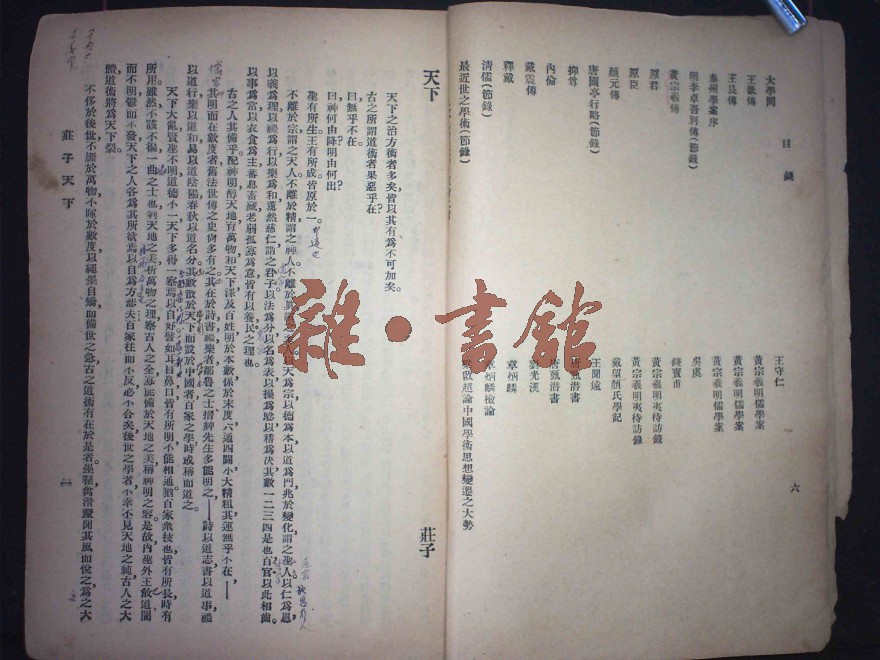 目錄
大學問 王守仁
王畿傳 黃宗羲明儒學案
王艮傳 黃宗羲明儒學案
泰州學案序 黃宗羲明儒學案
明李卓吾別傳(節錄) 吳虞
黃宗羲傳 錢寶甫
原君 黃宗羲明夷待訪錄
原臣 黃宗羲明夷待訪錄
顏元傳 戴望顏氏學記
唐圃亭行略(節錄) 王聞遠
抑尊 唐甄潛書
內倫 唐甄潛書
戴震傳 劉光漢
釋戴 章炳麟
清儒(節錄) 章炳麟檢論
最近世之學術(節錄) 梁啟超論中國學術思想變遷之大勢
六
天下 莊子
天下之治方術者多矣皆以其有爲不可加矣。
古之所謂道術者果惡乎在?
曰無乎不在。
曰神何由降明由何出?
聖有所生王有所成皆原於一。
不離於宗謂之天人。不離於精謂之神人。不離於眞謂之至人。以天爲宗以德爲本以道爲門兆於變化謂之聖人以仁爲恩,
以義爲理以禮爲行以樂爲和薰然慈仁謂之君子以法爲分以名爲表以操爲驗以稽爲決其數一二三四是也百官以此相齒。
以事爲常以衣食爲主蕃息畜藏老弱孤寡爲意皆有以養民之理也。
古之人其備乎配神明醇天地育萬物和天下澤及百姓明於本數係於末度六通四闢小大精粗其運無乎不在,——
其明而在數度者舊法世傳之史尙多有之其在於詩書禮樂者鄒魯之士搢神先生多能明之——詩以道志書以道事禮
以道行樂以道和易以道陰陽春秋以道名分。其數散於天下而設於中國者百家之學時或稱而道之。
天下大亂賢聖不明道德不一天下多得一察焉以自好譬如耳目鼻口皆有所明不能相通猶百家衆技也皆有所長時有
所用雖然不該不徧一曲之士也判天地之美析萬物之理察古人之全寡能備於天地之美稱神明之容是故內聖外王之道闇
而不明鬱而不發天下之人各爲其所欲焉以自爲方悲夫百家往而不反必不合矣後世之學者不幸不見天地之純古人之大
體道術將爲天下裂。
不侈於後世不靡於萬物不暉於數度以繩墨自矯而備世之急古之道術有在於是者墨翟禽滑釐聞其風而悅之爲之大
莊子天下
二
雜·書館